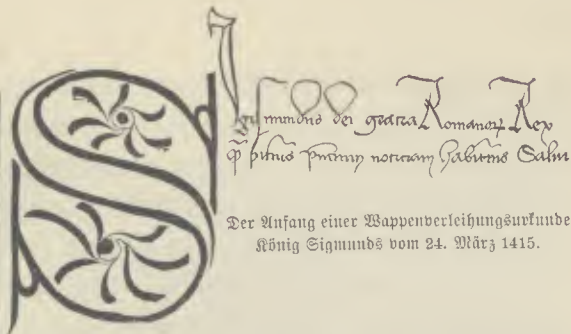 Sigismundus dei gracia Romanoꝝ Rex
noticiam habituris Salu
Der Anfang einer Wappenverleihungsurkunde
König Sigmunds vom 24. März 1415.